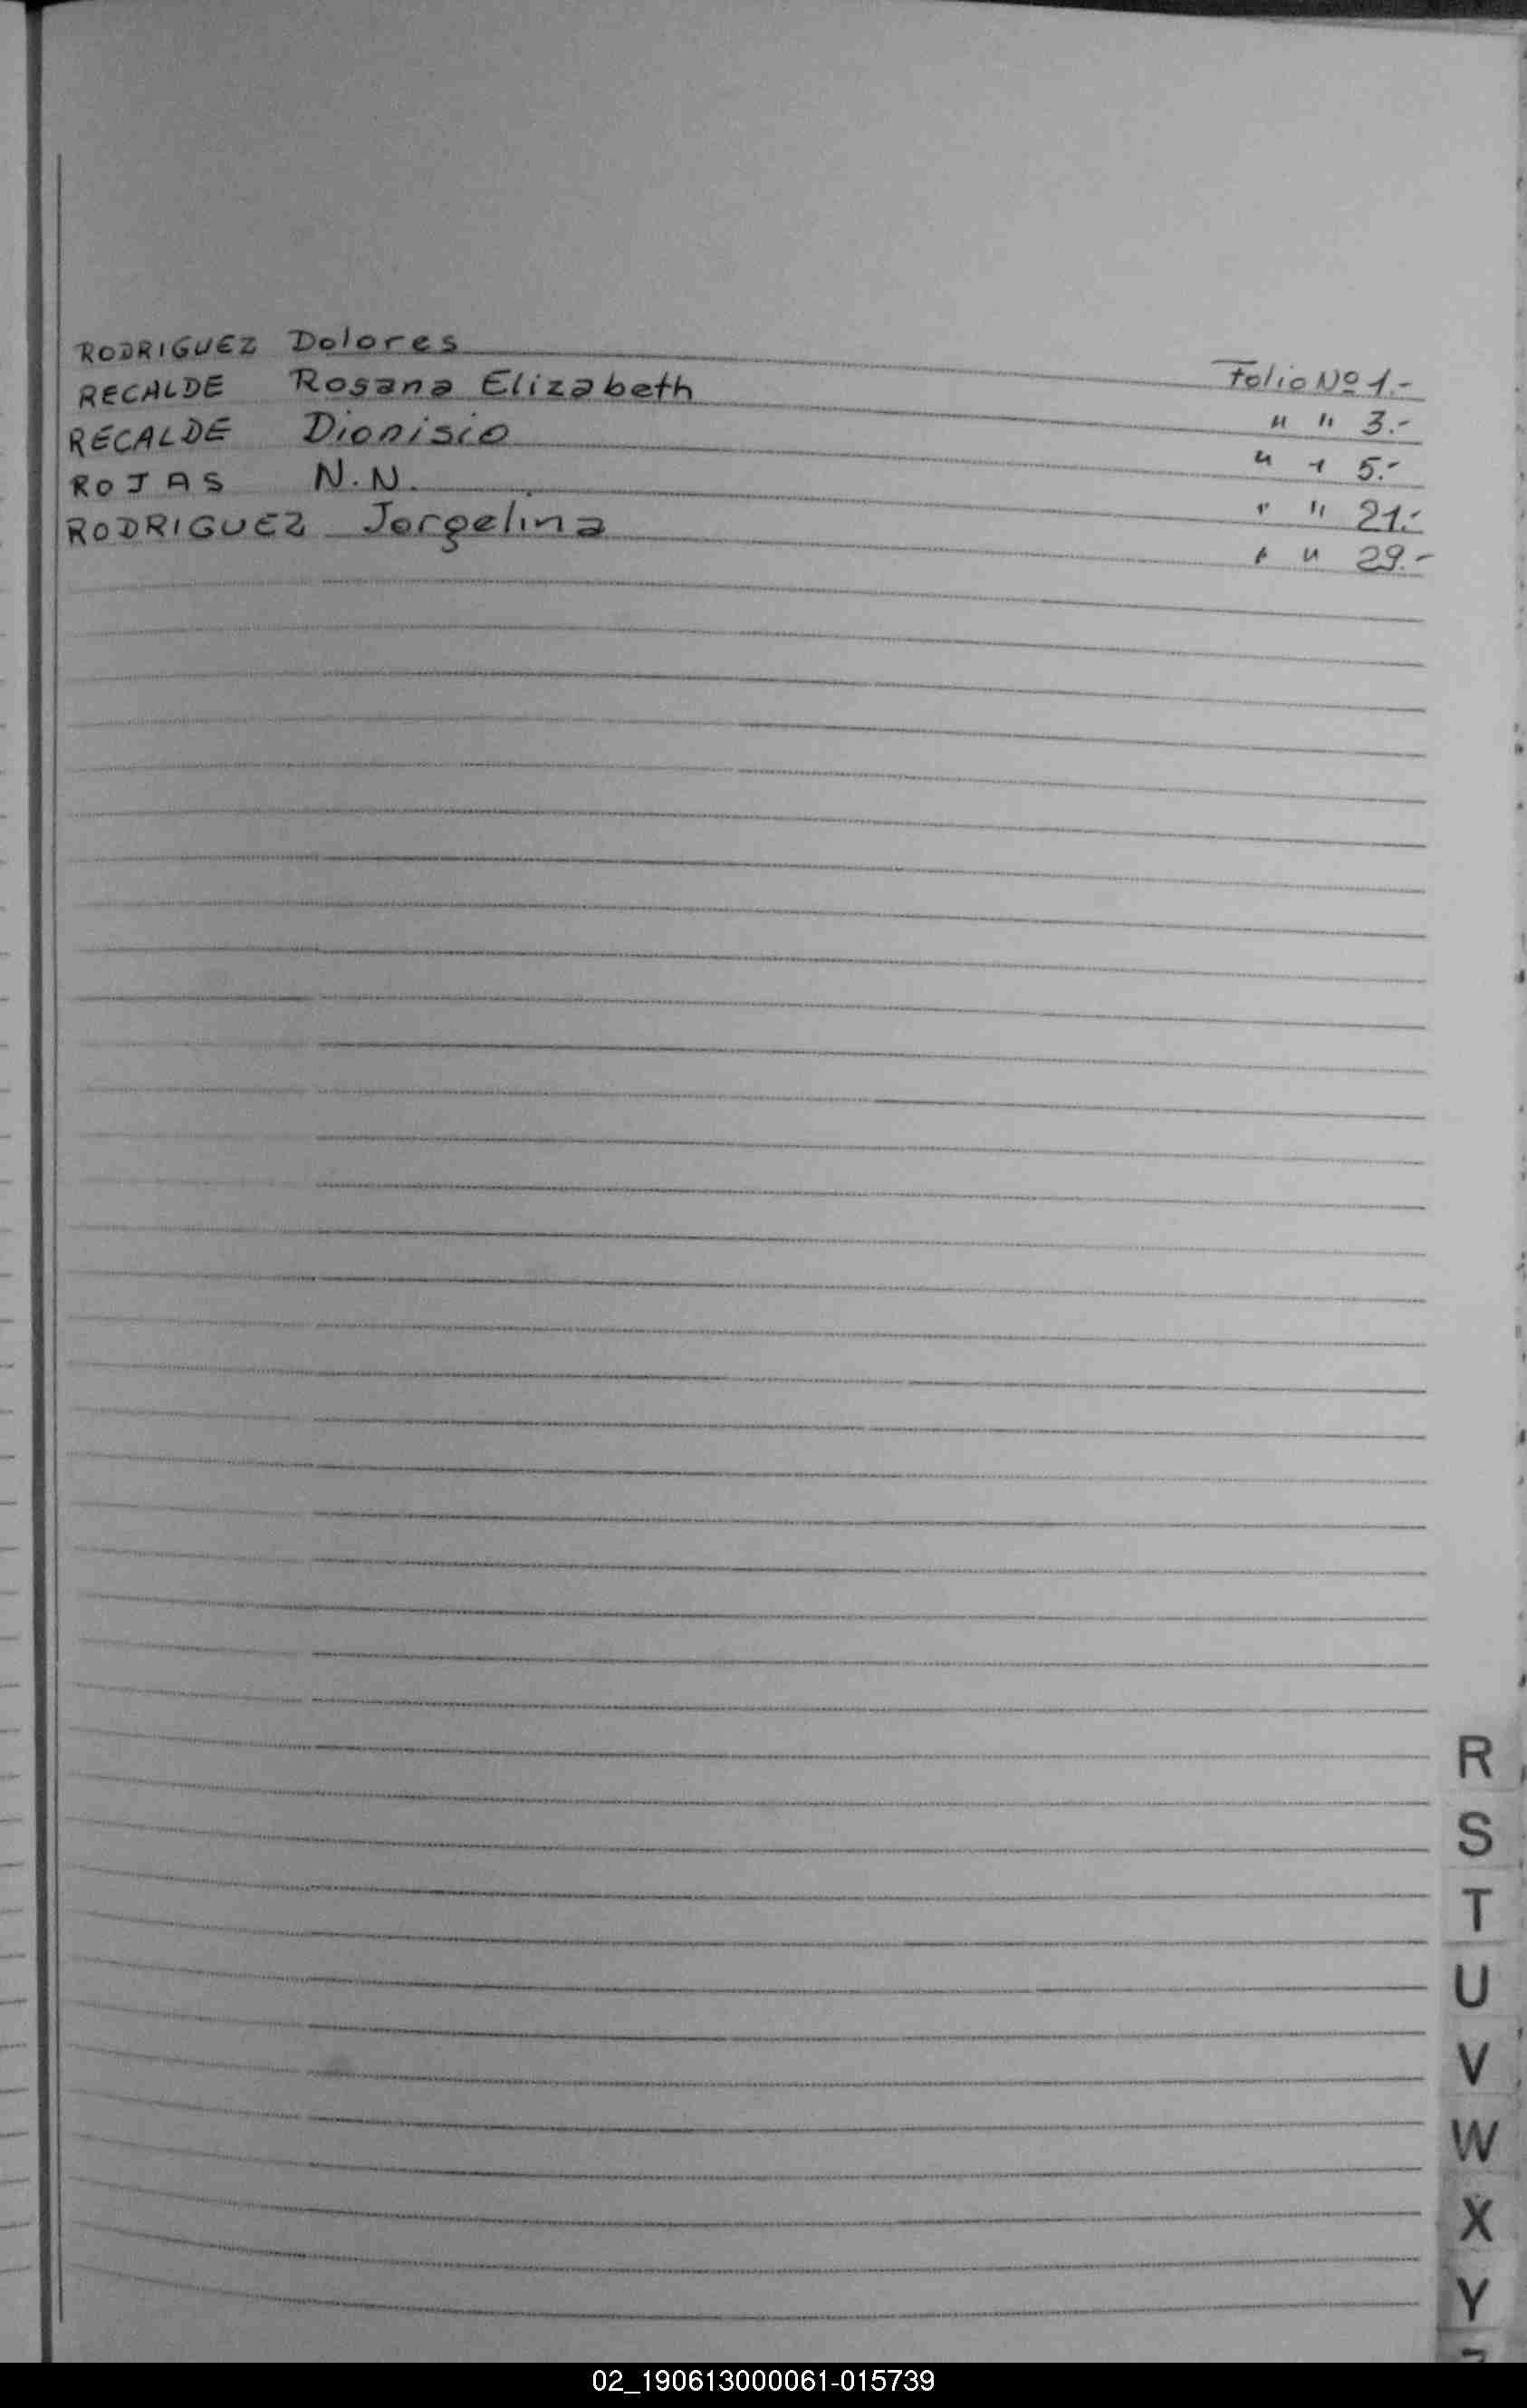 RODRIGUEZ Dolores Folio Nº 1.-
RECALDE Rosana Elizabeth " " 3.-
RECALDE Dionisio " " 5.-
ROJAS N.N. " " 21.-
RODRIGUEZ Jorgelina " " 29.-
R
S
T
U
V
W
X
Y
02_190613000061-015739